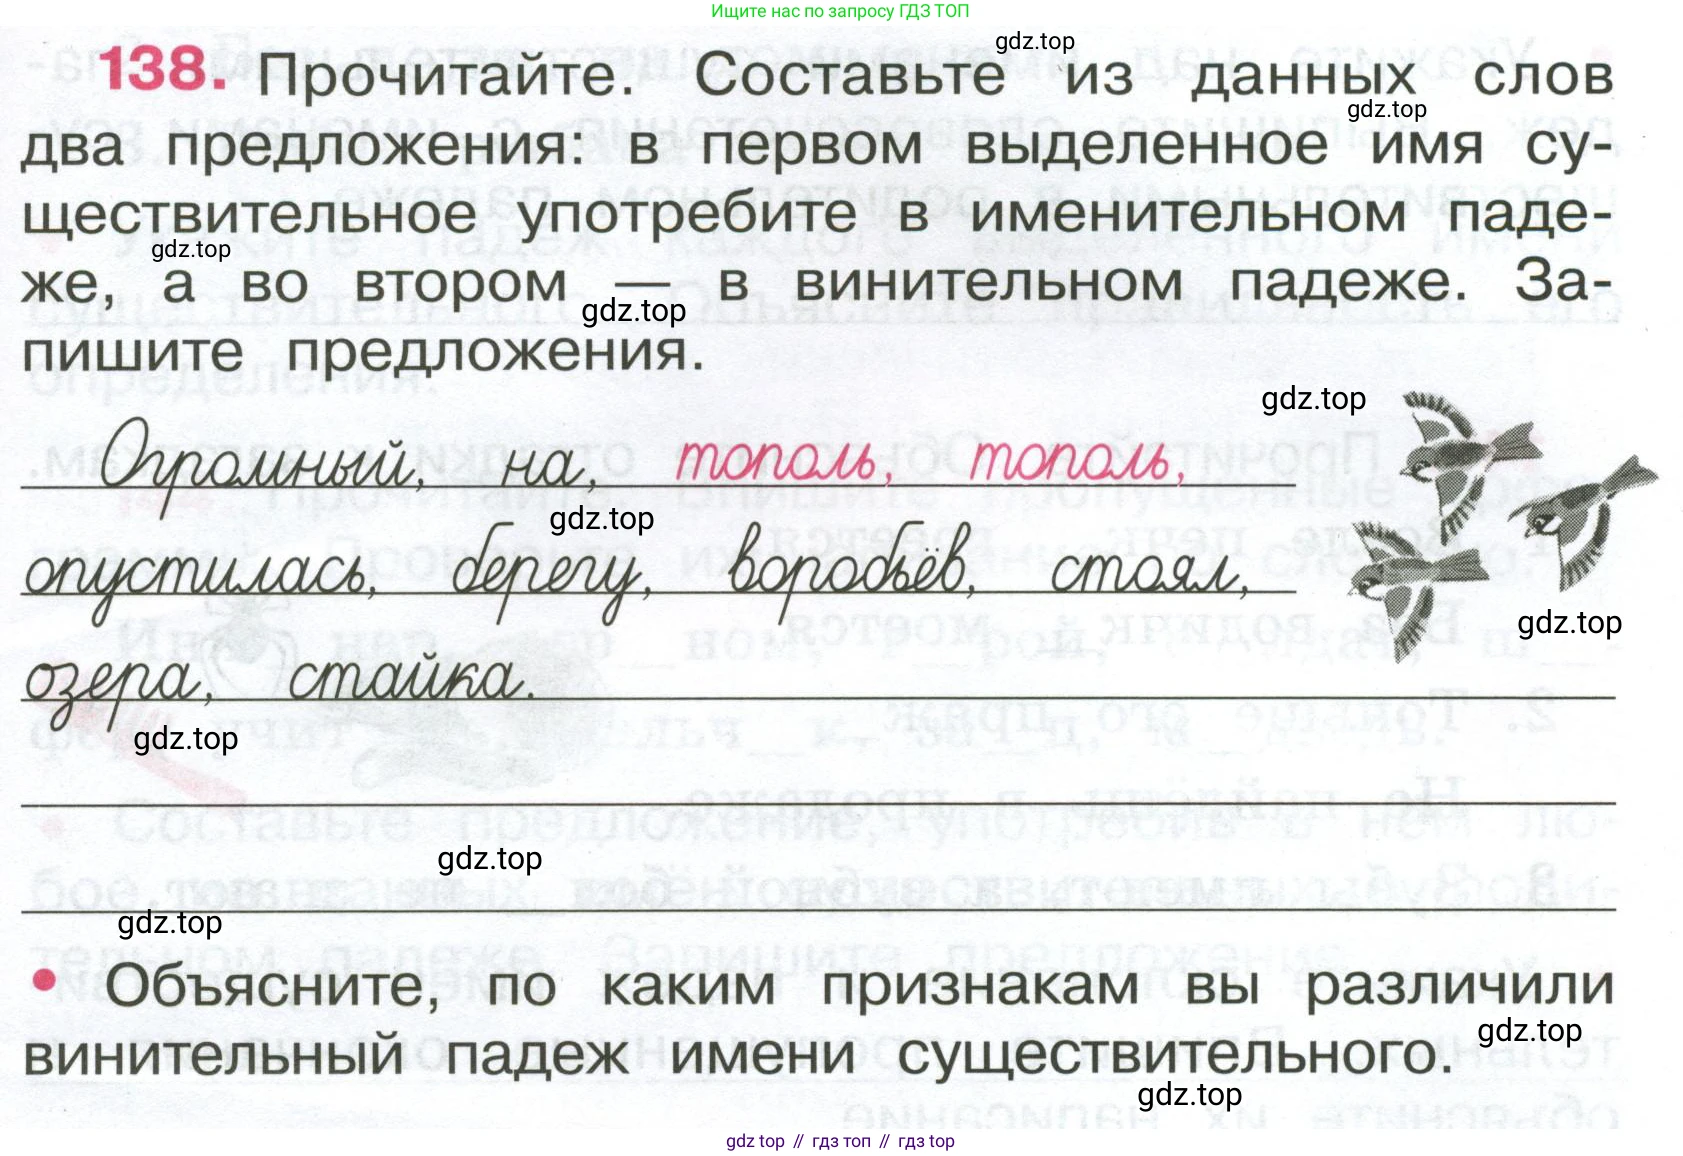 Ищите нас по запросу ГДЗ ТОП
gdz.top
138. Прочитайте. Составьте из данных слов
gdz.top
два предложения: в первом выделенное имя су-
ществительное употребите в именительном паде-
gdz.top
же, а во втором — в винительном падеже. За-
gdz.top
пишите предложения.
gdz.top
Огромный, на, тополь, тополь,
gdz.top
опустилась, берегу, воробьёв, стоял,
gdz.top
озера, стайка.
gdz.top
gdz.top
gdz.top
• Объясните, по каким признакам вы различили
gdz.top
винительный падеж имени существительного.
gdz.top
gdz top // гдз топ // гдз top